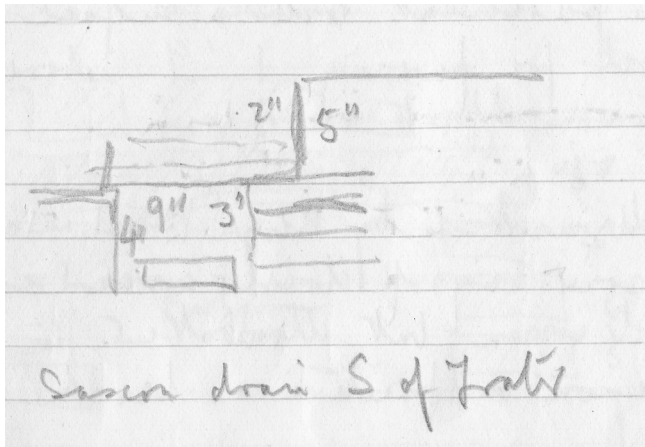 2" 5"
4' 9" 3'
Saxon drain S of Frater